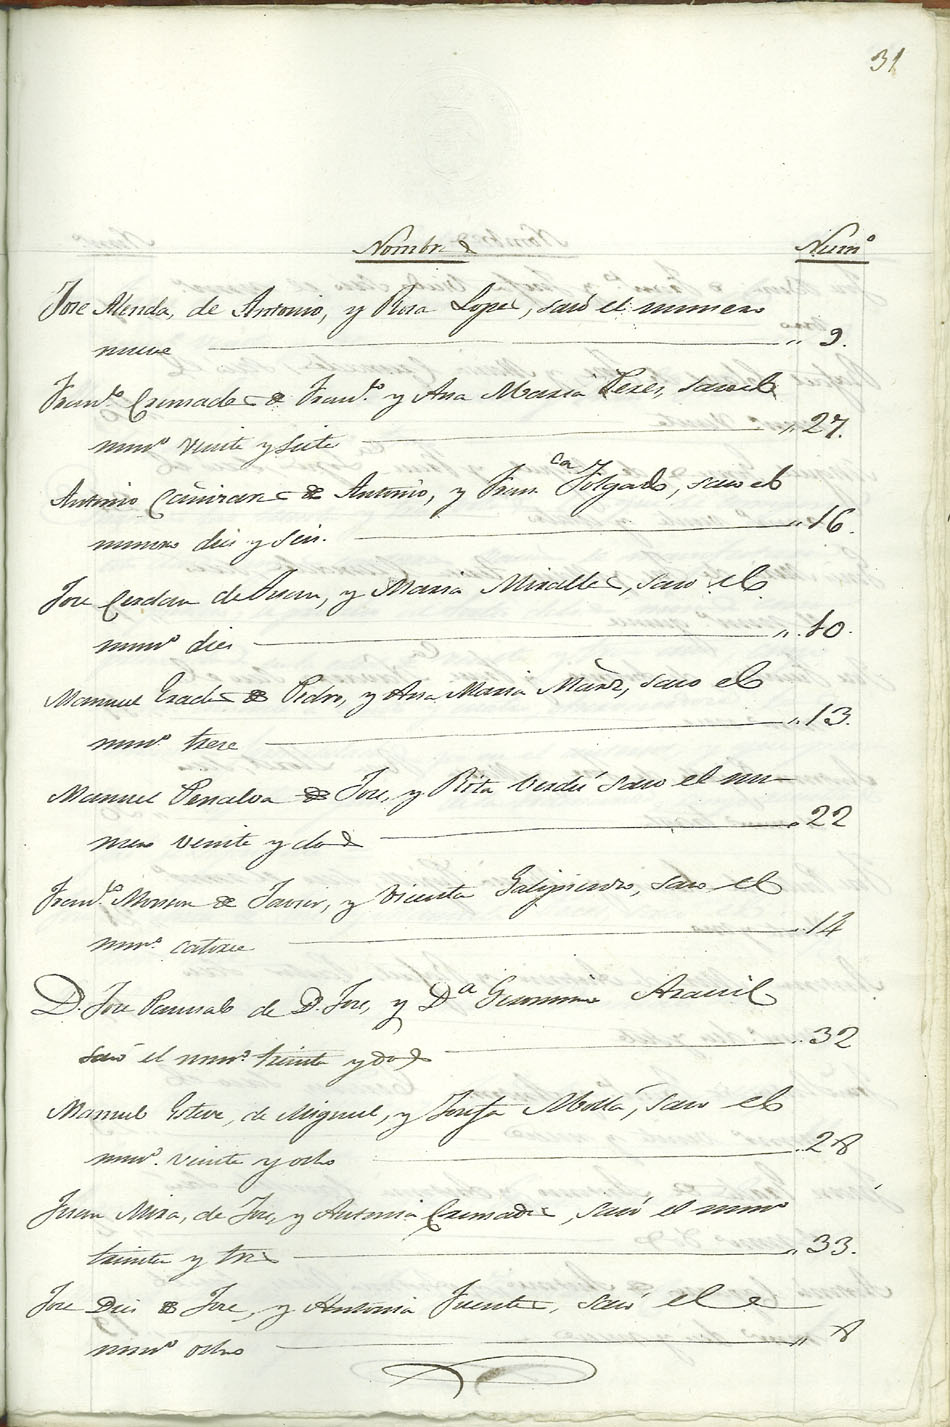 31
Nombres Num.º
Jose Alenda, de Antonio, y Rosa Lopes, sacó el numero
nueve " 9.
Fran.co Cremades de Fran.co y Ana Maria Peres, saco el
num.º veinte y siete " 27.
Antonio Cañizares de Antonio, y Fran.ca Folgado, saco el
numero dies y seis. " 16.
Jose Cerdan de Juan, y Maria Miralles, saco el
num.º dies " 10.
Manuel Prades de Pedro, y Ana Maria Marz, saco el
num.º trese " 13.
Manuel Penalva de Jose, y Rita Verdú saco el nu-
mero veinte y dos " 22
Fran.co Monzon de Javier, y Vicenta Galipienzo, saco el
num.º catorce " 14
D. Jose Pascual de D. Jose, y D.a Geronima Aracil
sacó el num.º treinta y dos " 32
Manuel Esteve, de Miguel, y Josefa Mollá, saco el
num.º veinte y ocho " 28
Juan Mira, de Jose, y Antonia Cremades, sacó el num.º
treinta y tres " 33.
Jose Dies de Jose, y Antonia Fuentes, sacó el
num.º ocho " 8